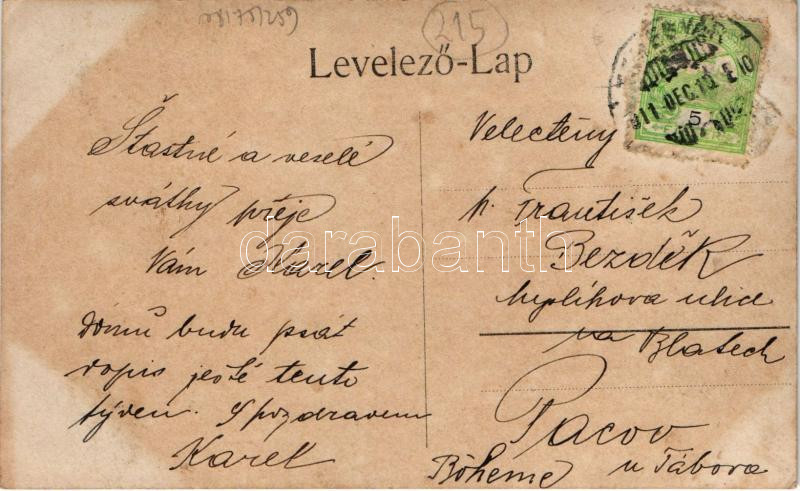 215
Levelező-Lap
911 DEC.
5
Šťastné a veselé
svátky přeje
Vám Karel.
domů budu psát
dopis ještě tento
týden. S pozdravem
Karel
Velectěný
p. František
Bezděk
ulice
na Blatech
Pacov
u Tábora
Böheme
darabanth